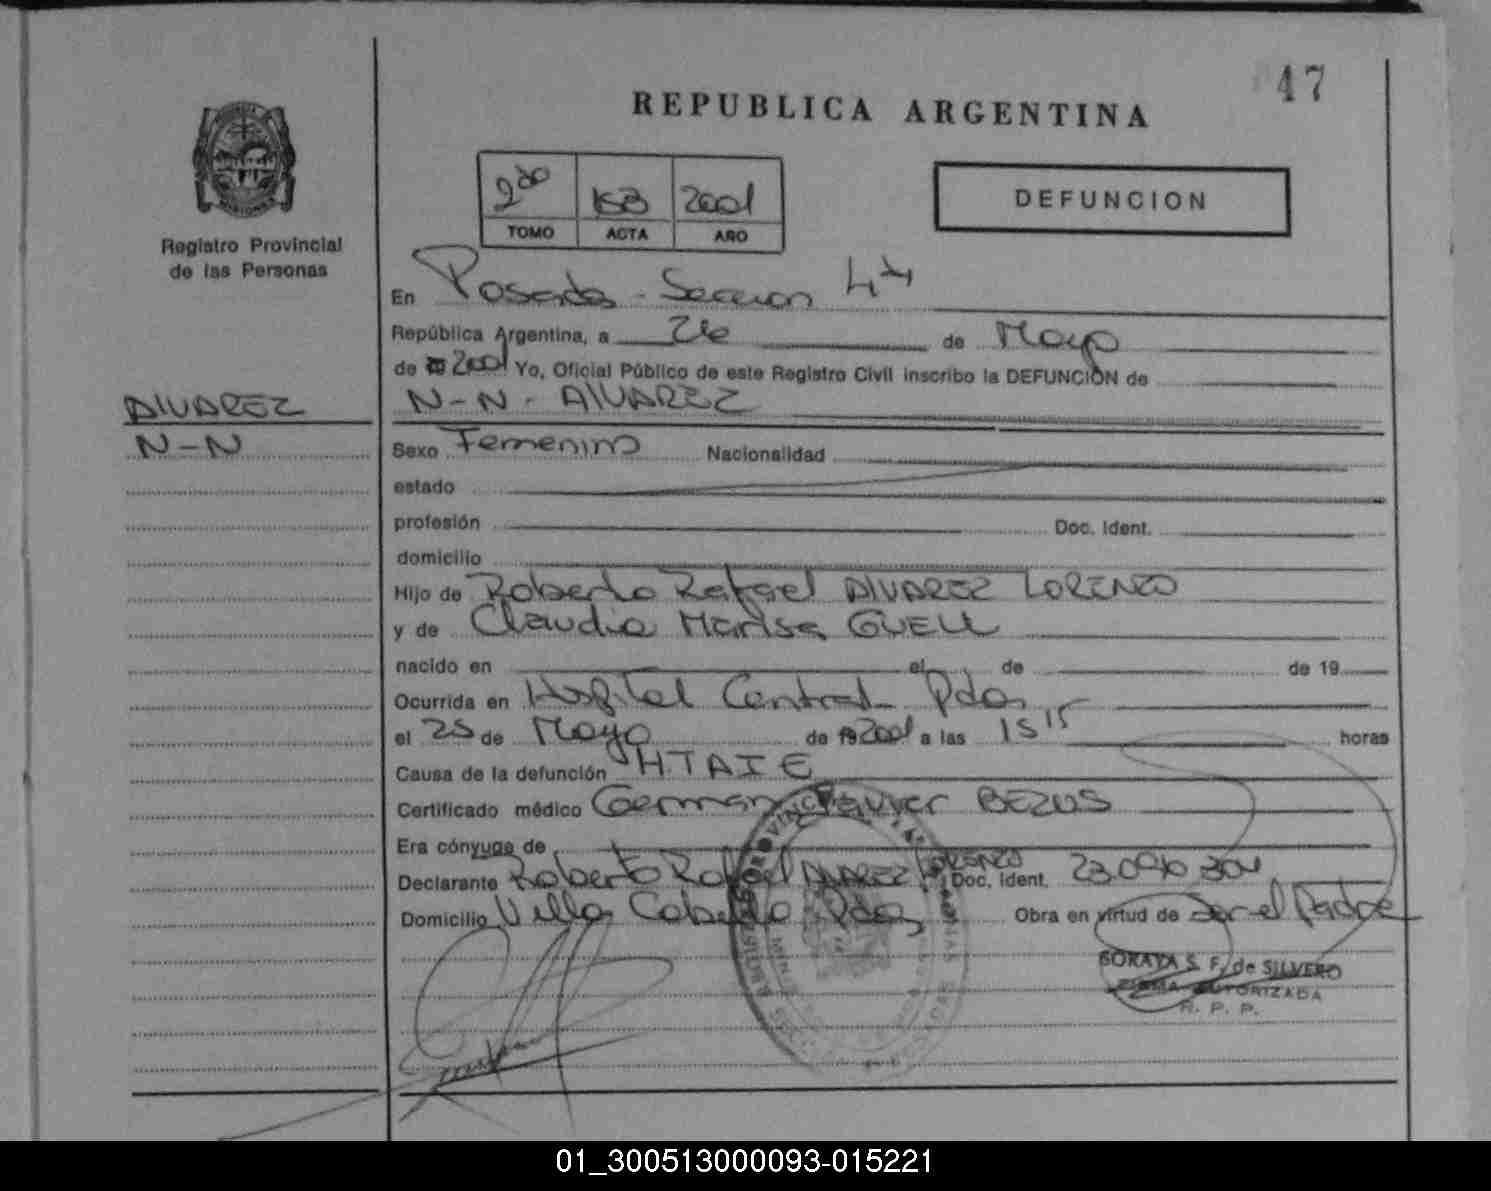 47
REPUBLICA ARGENTINA
2do 153 2001
TOMO ACTA AÑO
DEFUNCION
Registro Provincial
de las Personas
En Posadas - Seccion 4ta
República Argentina, a 26 de Mayo
de 2001 Yo, Oficial Público de este Registro Civil inscribo la DEFUNCIÓN de
ALVAREZ
N-N
N-N- ALVAREZ
Sexo Femenino Nacionalidad
estado
profesión Doc. Ident.
domicilio
Hijo de Roberto Rafael ALVAREZ LORENZO
y de Claudia Marisa GÜELL
nacido en el de de 19
Ocurrida en Hospital Central Pdas
el 25 de Mayo de 19 2001 a las 15 15 horas
Causa de la defunción
Certificado médico German Javier BEZUS
Era cónyuge de
Declarante Roberto Rafael ALVAREZ LORENZO Doc. Ident. 23.096.304
Domicilio Villa Cabello Pdas Obra en virtud de ser el Padre
SORAYA S. F. de SILVERO
FIRMA AUTORIZADA
R. P. P.
01_300513000093-015221